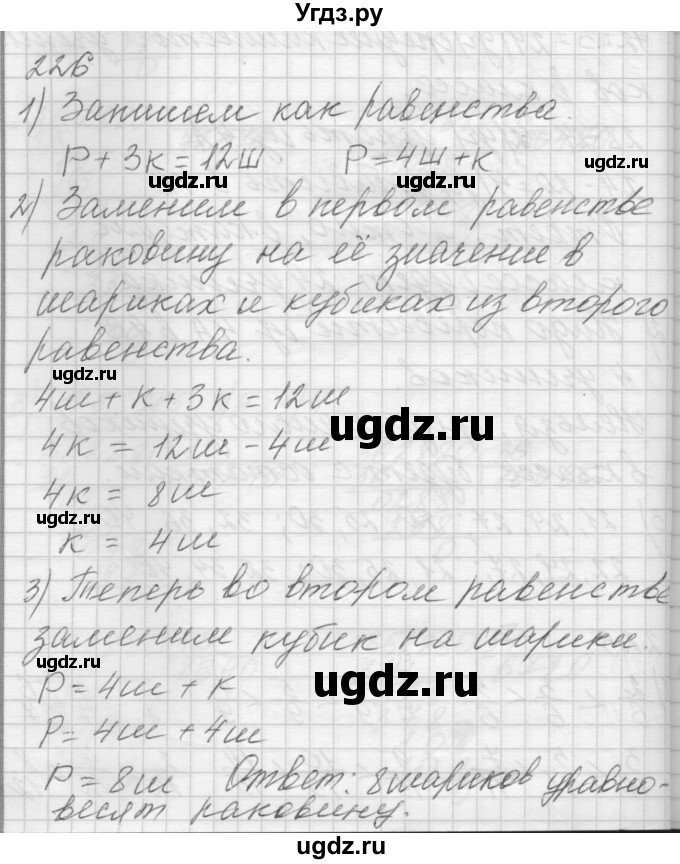 Угдз.ру
226
1) Запишем как равенства.
Р + 3к = 12ш Р = 4ш + к
ugdz.ru ugdz.ru
2) Заменим в первом равенстве
раковину на её значение в
шариках и кубиках из второго
равенства.
ugdz.ru
4ш + к + 3к = 12ш
ugdz.ru
4к = 12ш - 4ш
4к = 8ш
ugdz.ru
к = 4ш
3) Теперь во втором равенстве
заменим кубик на шарики.
ugdz.ru
Р = 4ш + к
ugdz.ru
Р = 4ш + 4ш
Р = 8ш Ответ: 8 шариков уравно-
весят раковину.
ugdz.ru